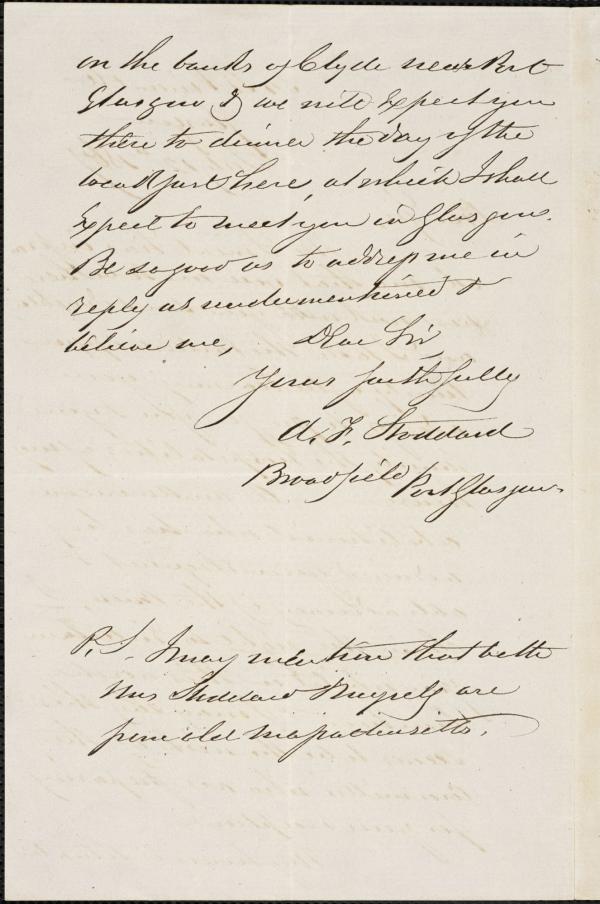 on the banks of Clyde near Port
Glasgow & we will expect you
there to dinner the day of the
breakfast here, at which I shall
expect to meet you in Glasgow.
Be so good as to address me in
reply as undermentioned &
believe me, Dear Sir,
Yours faithfully
A. F. Stoddard
Broadfield Port Glasgow
P.S. I may mention that both
Mrs Stoddard & myself are
from old Massachusetts.